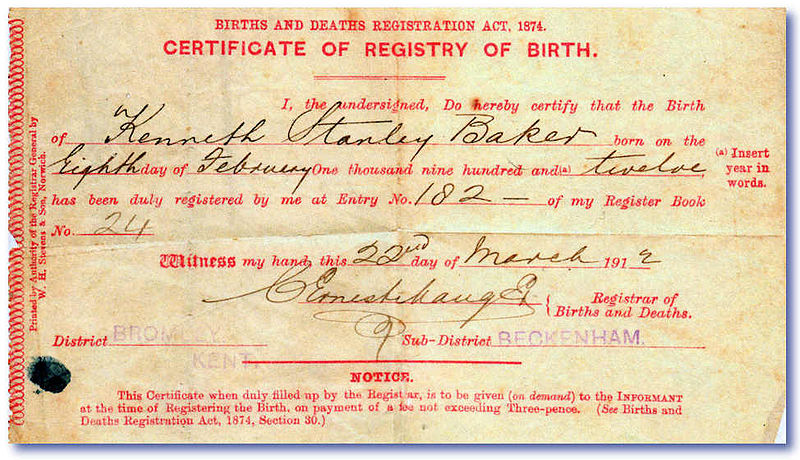 BIRTHS AND DEATHS REGISTRATION ACT, 1874.
CERTIFICATE OF REGISTRY OF BIRTH.
I, the undersigned, Do hereby certify that the Birth
of Kenneth Stanley Baker born on the
Eighth day of February One thousand nine hundred and (a) twelve,
(a) Insert
year in
words.
has been duly registered by me at Entry No. 182 — of my Register Book
No. 24
Witness my hand, this 22nd day of March 1912
Registrar of
Births and Deaths.
District BROMLEY Sub-District BECKENHAM.
KENT.
NOTICE.
This Certificate when duly filled up by the Registrar, is to be given (on demand) to the INFORMANT
at the time of Registering the Birth, on payment of a fee not exceeding Three-pence. (See Births and
Deaths Registration Act, 1874, Section 30.)
Printed by Authority of the Registrar General by
W. H. Stevens & Son, Norwich.